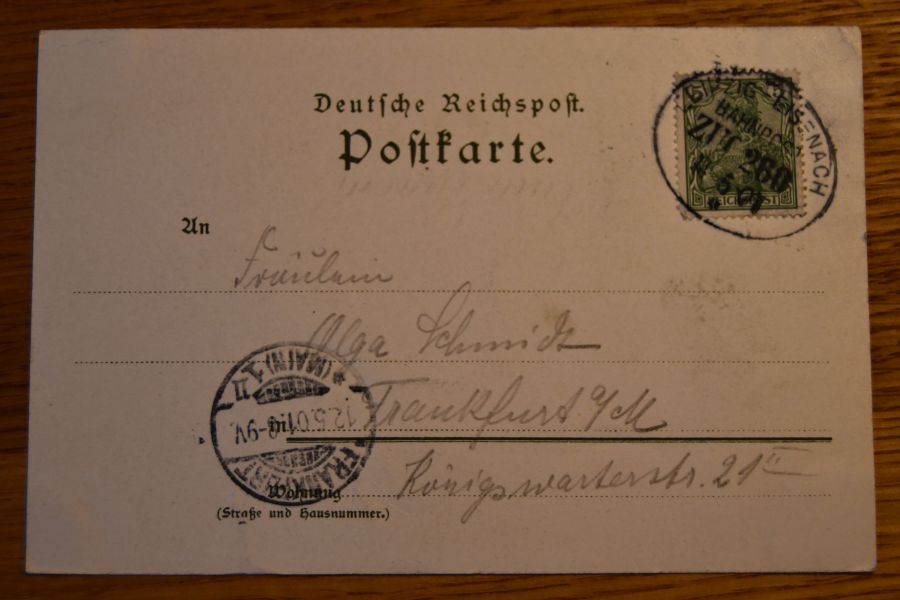 Deutsche Reichspost.
Postkarte.
LEIPZIG-EISENACH
BAHNPOST
ZUG 260
5 01
REICHSPOST
An
Fräulein
Olga Schmidt
in Frankfurt a/M
Königswarterstr. 21
Wohnung
(Straße und Hausnummer.)
FRANKFURT
* (MAIN) 1
12.5.01. 8-9V.